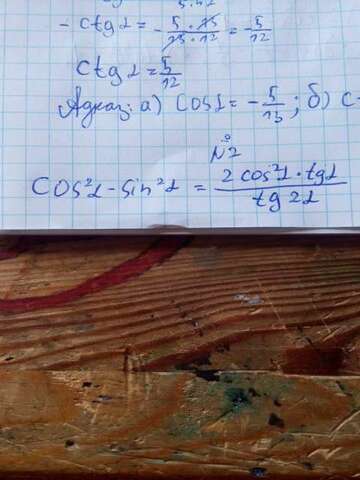 - ctg α = - 5 · 13 / 13 · 12 = - 5/12
ctg α = 5/12
Адказ: а) cos α = - 5/13; б)
№2
cos²α - sin²α = 2 cos²α · tg α / tg 2α